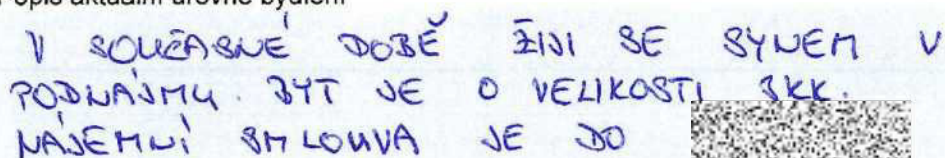 Popis aktuální úrovně bydlení
V SOUČASNÉ DOBĚ ŽIJI SE SYNEM V
PODNÁJMU. BYT JE O VELIKOSTI 3KK.
NÁJEMNÍ SMLOUVA JE DO